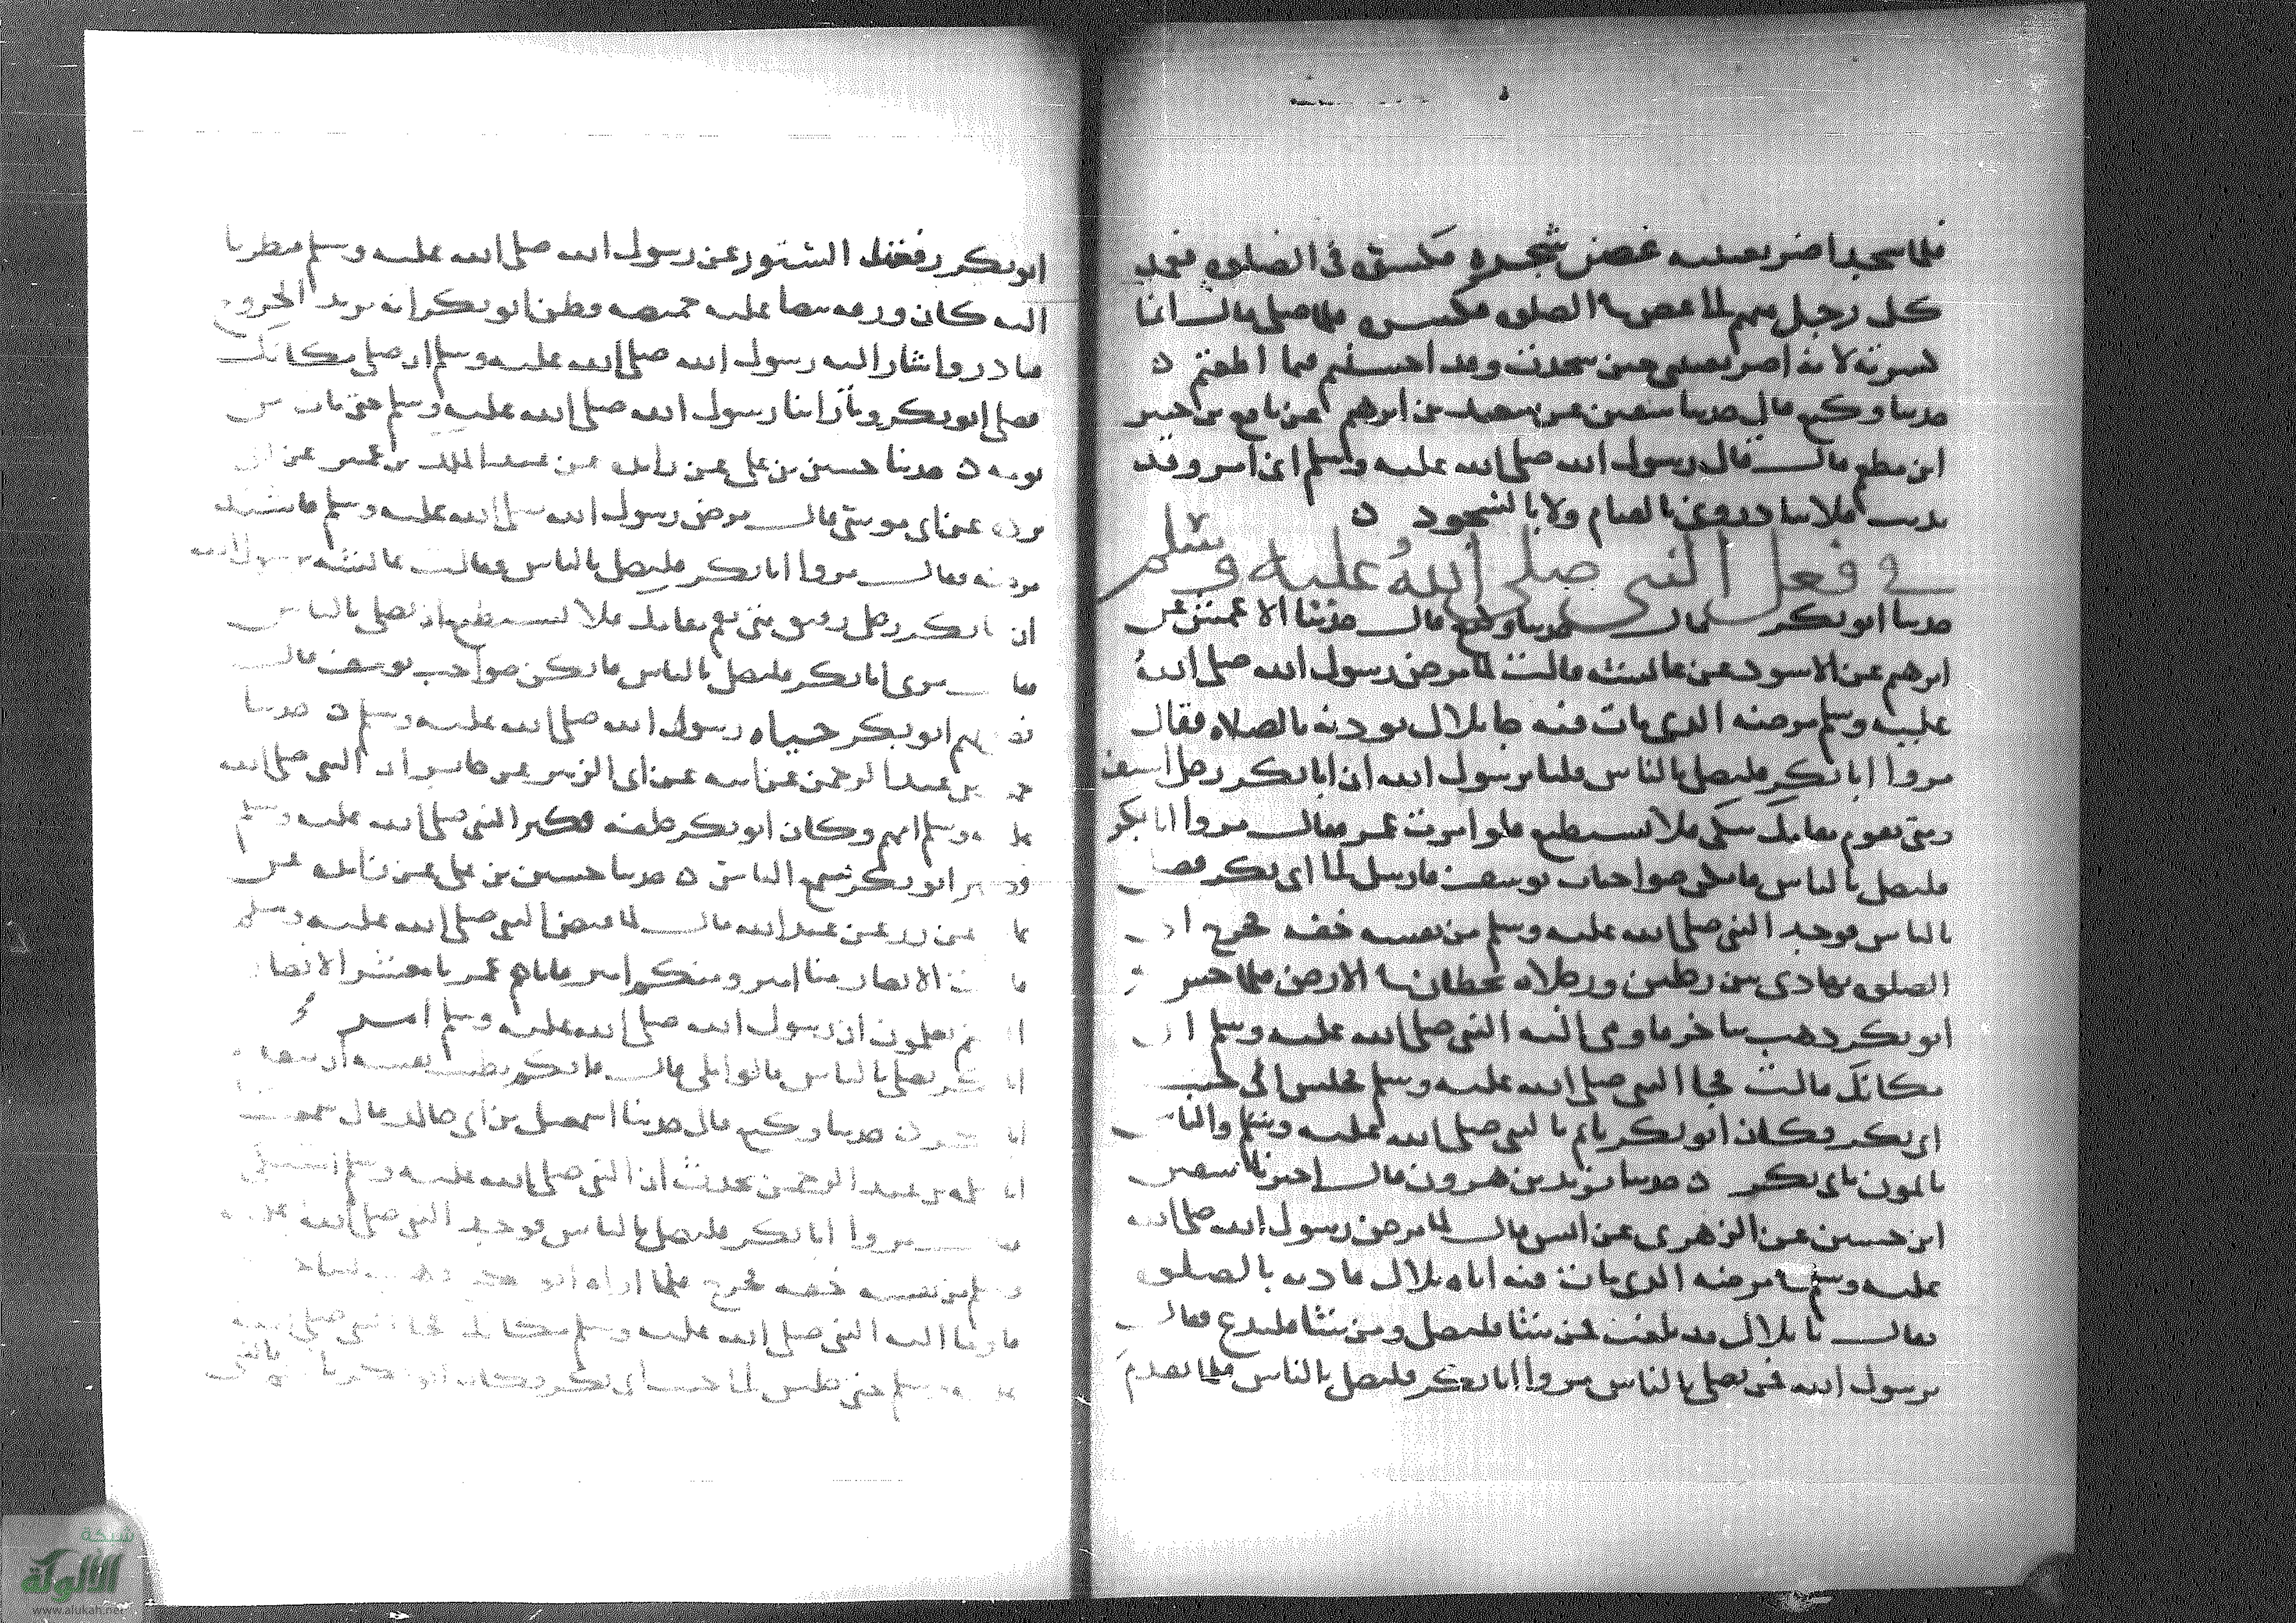 فلما سجد اضر بعينيه غصن شجرة فكسره في الصلوة فعمد
كل رجل منهم لما غصن في الصلوة فكسره فلما صلى قال انما
كسرته لانه اضر بعيني حين سجدت وقد احسنتم فيما اطعتم ه
حدثنا وكيع قال حدثنا سفين عن سعيد بن ابرهيم عن نافع بن جبير
ابن مطعم قال قال رسول الله صلى الله عليه وسلم اني امرو قد
بدنت فلا تبادروني بالقيام ولا بالسجود ه
في فعل النبي صلى الله عليه وسلم
حدثنا ابو بكر قال حدثنا وكيع قال حدثنا الاعمش عن
ابرهيم عن الاسود عن عائشة قالت لما مرض رسول الله صلى الله
عليه وسلم مرضه الذي مات فيه جا بلال يوذنه بالصلاه فقال
مروا ابا بكر فليصل بالناس قلنا يرسول الله ان ابا بكر رجل اسيف
ومتى يقوم مقامك يبكي فلا يستطيع فلو امرت عمر فقال مروا ابا بكر
فليصل بالناس فانكن صواحبات يوسف فارسل الى ابي بكر فصلى
بالناس فوجد النبي صلى الله عليه وسلم من نفسه خفه فخرج الى
الصلوة يهادى بين رجلين ورجلاه تخطان في الارض فلما حس به
ابو بكر ذهب يتاخر فاومى اليه النبي صلى الله عليه وسلم ان
مكانك قالت فجا النبي صلى الله عليه وسلم فجلس الى جنب
ابي بكر فكان ابو بكر ياتم بالنبي صلى الله عليه وسلم والناس
ياتمون بابي بكر ه حدثنا يزيد بن هرون قال اخبرنا سفين
ابن حسين عن الزهري عن انس قال لما مرض رسول الله صلى الله
عليه وسلم مرضه الذي مات فيه اتاه بلال فاذنه بالصلوة
فقال يا بلال قد بلغت فمن شا فليصل ومن شا فليدع فقال
يرسول الله فمن يصلي بالناس مروا ابا بكر فليصل بالناس فلما تقدم
ابو بكر رفعت الستور عن رسول الله صلى الله عليه وسلم فنظرنا
اليه كانه ورقه بيضا عليه خميصه وظن ابو بكر انه يريد الخروج
فتاخر واشار اليه رسول الله صلى الله عليه وسلم ان صلى مكانك
فصلى ابو بكر وما راينا رسول الله صلى الله عليه وسلم حتى مات من
يومه ه حدثنا حسين بن علي عن زايده عن عبد الملك بن عمير عن ابي
برده عن ابي موسى قال مرض رسول الله صلى الله عليه وسلم فاشتد
مرضه فقال مروا ابا بكر فليصل بالناس فقالت عائشه يرسول الله
ان ابا بكر رجل رقيق متى يقم مقامك فلا يستطيع ان يصلي بالناس
فقال مري ابا بكر فليصل بالناس فانكن صواحب يوسف قال
فصلى بهم ابو بكر حياه رسول الله صلى الله عليه وسلم ه حدثنا
حميد بن عبد الرحمن عن ابيه عن ابي الزبير عن جابر ان النبي صلى الله
عليه وسلم امهم وكان ابو بكر خلفه فكبر النبي صلى الله عليه وسلم
وكبر ابو بكر يسمع الناس ه حدثنا حسين بن علي عن زايده عن
عاصم عن زر عن عبد الله قال لما قبض النبي صلى الله عليه وسلم
قالت الانصار منا امير ومنكم امير فاتاهم عمر يا معشر الانصار
الستم تعلمون ان رسول الله صلى الله عليه وسلم امر
ابا بكر يصلي بالناس قالوا بلى قال فايكم تطيب نفسه ان يتقدم
ابا بكر ه حدثنا وكيع قال حدثنا اسمعيل بن ابي خالد قال سمعت
عبد الرحمن يحدث ان النبي صلى الله عليه وسلم اشتكى
فقال مروا ابا بكر فليصل بالناس فوجد النبي صلى الله عليه
وسلم من نفسه خفه فخرج فلما راه ابو بكر
فاوما اليه النبي صلى الله عليه وسلم مكانك